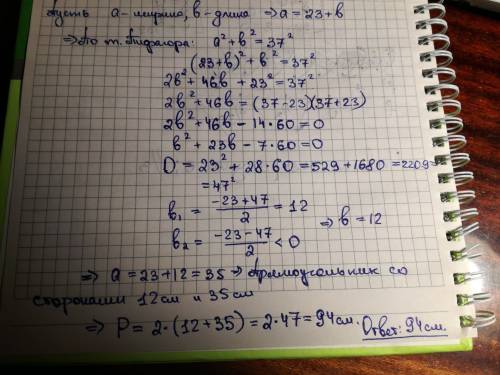 пусть a - ширина, b - длина ⇒ a = 23 + b
⇒ по т. Пифагора: a² + b² = 37²
(23 + b)² + b² = 37²
2b² + 46b + 23² = 37²
2b² + 46b = (37 - 23)(37 + 23)
2b² + 46b - 14·60 = 0
b² + 23b - 7·60 = 0
D = 23² + 28·60 = 529 + 1680 = 2209 =
= 47²
b₁ = (-23 + 47)/2 = 12
⇒ b = 12
b₂ = (-23 - 47)/2 < 0
⇒ a = 23 + 12 = 35 ⇒ прямоугольник со
сторонами 12 см и 35 см
⇒ P = 2·(12 + 35) = 2·47 = 94 см. Ответ: 94 см.